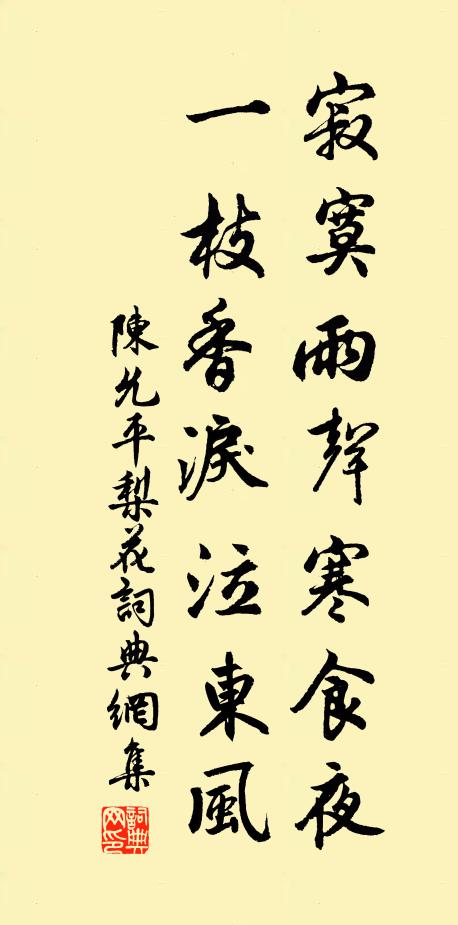 寂寞雨聲寒食夜
一枝香淚泣東風
陳允平梨花詞典網集
詞典網印